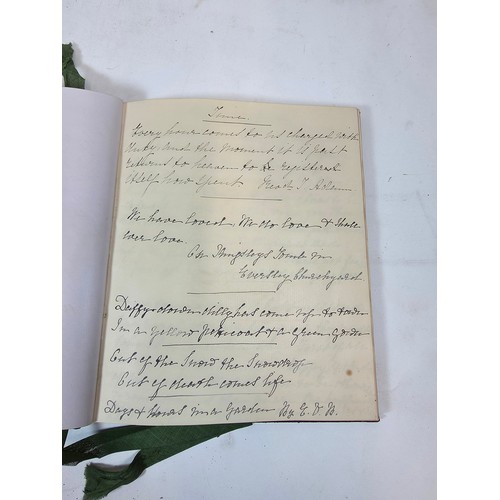 Time.
Every hour comes to us charged with
duty, and the moment it is past
returns to heaven to be registered
itself how spent
We have loved. We do love & shall
ever love.
On Kingsleys Tomb in
Eversley Churchyard.
Daffy-down dilly has come up to town
In a yellow petticoat & a green gown
Out of the Snow the Snowdrop
Out of death comes life
Days & Hours in a Garden By E. V. B.